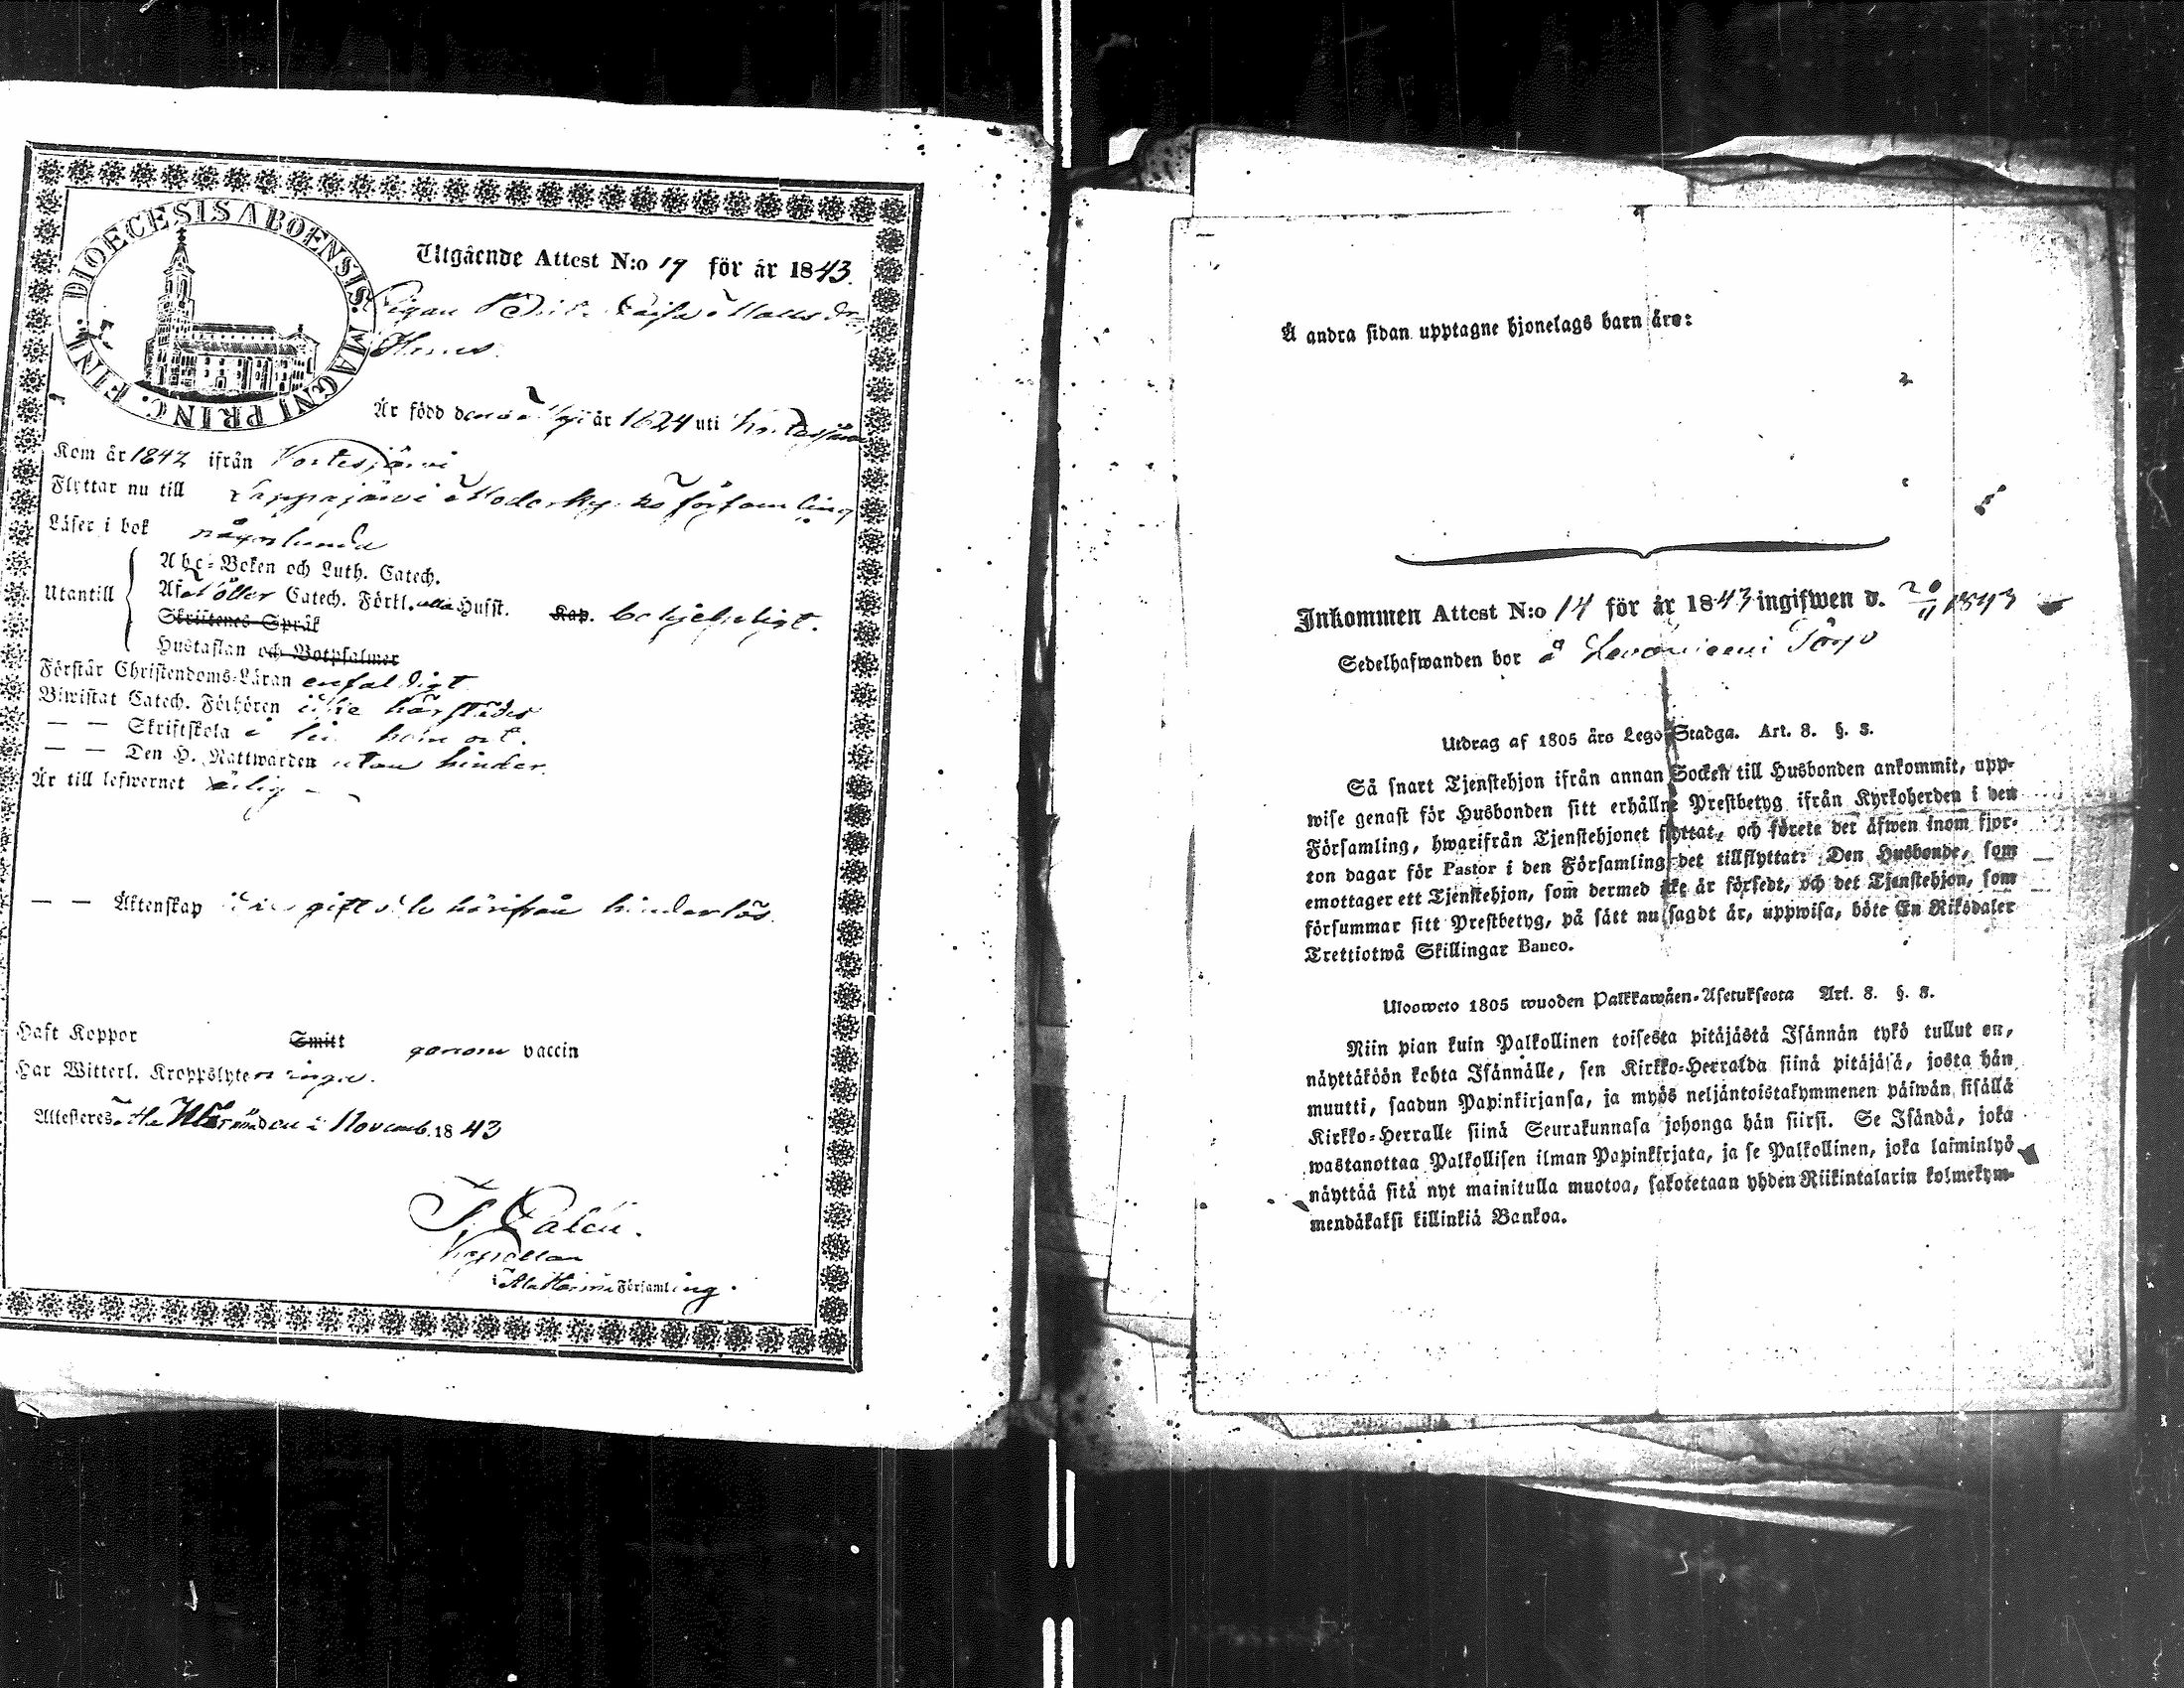 DIOECESIS ABOENSIS. MAGNI PRINC. FINL.
Utgående Attest N:o 19 för år 1843.
Pigan Brit. Caisa Matts dr
Är född den Maji år 1824 uti
Kom år 1842 ifrån Kortesjärvi
Flyttar nu till Lappajärvi Moderky. ko församling
Läser i bok någorlunda
Utantill
Abc-Boken och Luth. Catech.
Af Möller Catech. Förkl. alla Hufst. Kap. behjelpligt.
Skriftenes Språk
Hustaflan och Botpsalmer
Förstår Christendoms-Läran enfaldigt
Biwistat Catech. Förhören icke härstädes
— — Skriftskola i sin hem ort.
— — Den H. Nattwarden utan hinder.
Är till lefwernet ärlig
— — Äktenskap gift härifrån hinderlös.
Haft Koppor Smitt genom vaccin
Har Witterl. Kroppslyten inga.
Attesteres Ala Härmä den 2 Novemb. 1843
Kapellan
i Ala Härmä Församling.
Å andra sidan upptagne hjonelags barn äro:
Inkommen Attest N:o 14 för år 1843 ingifwen d. 20/11 1843
Sedelhafwanden bor å Levoniemi Torp
Utdrag af 1805 års Lego-Stadga. Art. 8. §. 8.
Så snart Tjenstehjon ifrån annan Socken till Husbonden ankommit, upp-
wise genast för Husbonden sitt erhållne Prestbetyg ifrån Kyrkoherden i den
Församling, hwarifrån Tjenstehjonet flyttat, och förete det äfwen inom fjor-
ton dagar för Pastor i den Församling det tillflyttat: Den Husbonde, som
emottager ett Tjenstehjon, som dermed icke är försedt, och det Tjenstehjon, som
försummar sitt Prestbetyg, på sätt nu sagdt är, uppwisa, böte En Riksdaler
Trettiotwå Skillingar Banco.
Ulosweto 1805 wuoden Palkkawäen-Asetuksesta Art. 8. §. 8.
Niin pian kuin Palkollinen toisesta pitäjästä Isännän tykö tullut on,
näyttäköön kohta Isännälle, sen Kirkko-Herralda siinä pitäjäsä, josta hän
muutti, saadun Papinkirjansa, ja myös neljäntoistakymmenen päiwän sisällä
Kirkko-Herralle siinä Seurakunnasa johonga hän siirsi. Se Isändä, joka
wastanottaa Palkollisen ilman Papinkirjata, ja se Palkollinen, joka laiminlyö
näyttää sitä nyt mainitulla muotoa, sakotetaan yhden Riikintalarin kolmekym-
mendäkaksi killinkiä Bankoa.